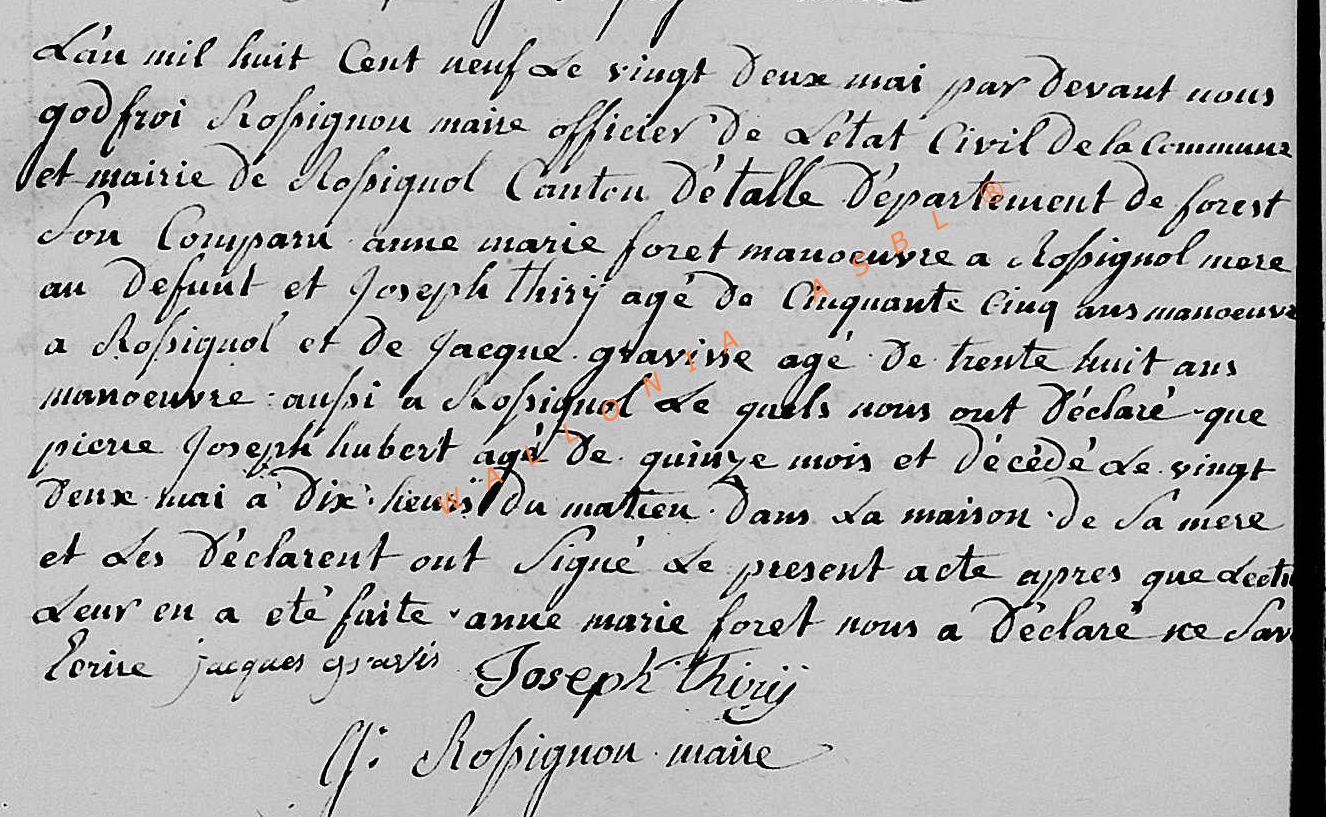 L'an mil huit Cent neuf Le vingt Deux mai par Devant nous
godfroi Rossignon maire officier De L'état Civil De la Commune
et mairie de Rossignol Canton D'étalle Département De forest
Son Comparu anne marie foret manoeuvre a Rossignol mere
au Defunt et Joseph thirÿ agé De Cinquante Cinq ans manoeuvre
a Rossignol et De Jacque gravisse agé De trente huit ans
manoeuvre aussi a Rossignol Le quels nous ont Déclaré que
pierre Joseph hubert agé De quinze mois et décédé Le vingt
Deux mai à Dix heurs Du matien Dans La maison De Sa mere
et Les Déclarent ont Signé Le present acte apres que Lectu
Leur en a eté faite anne marie foret nous a Déclaré ne Sav
Ecrire jacques gravis Joseph Thirÿ
G: Rossignon maire
WALLONIA ASBL ®